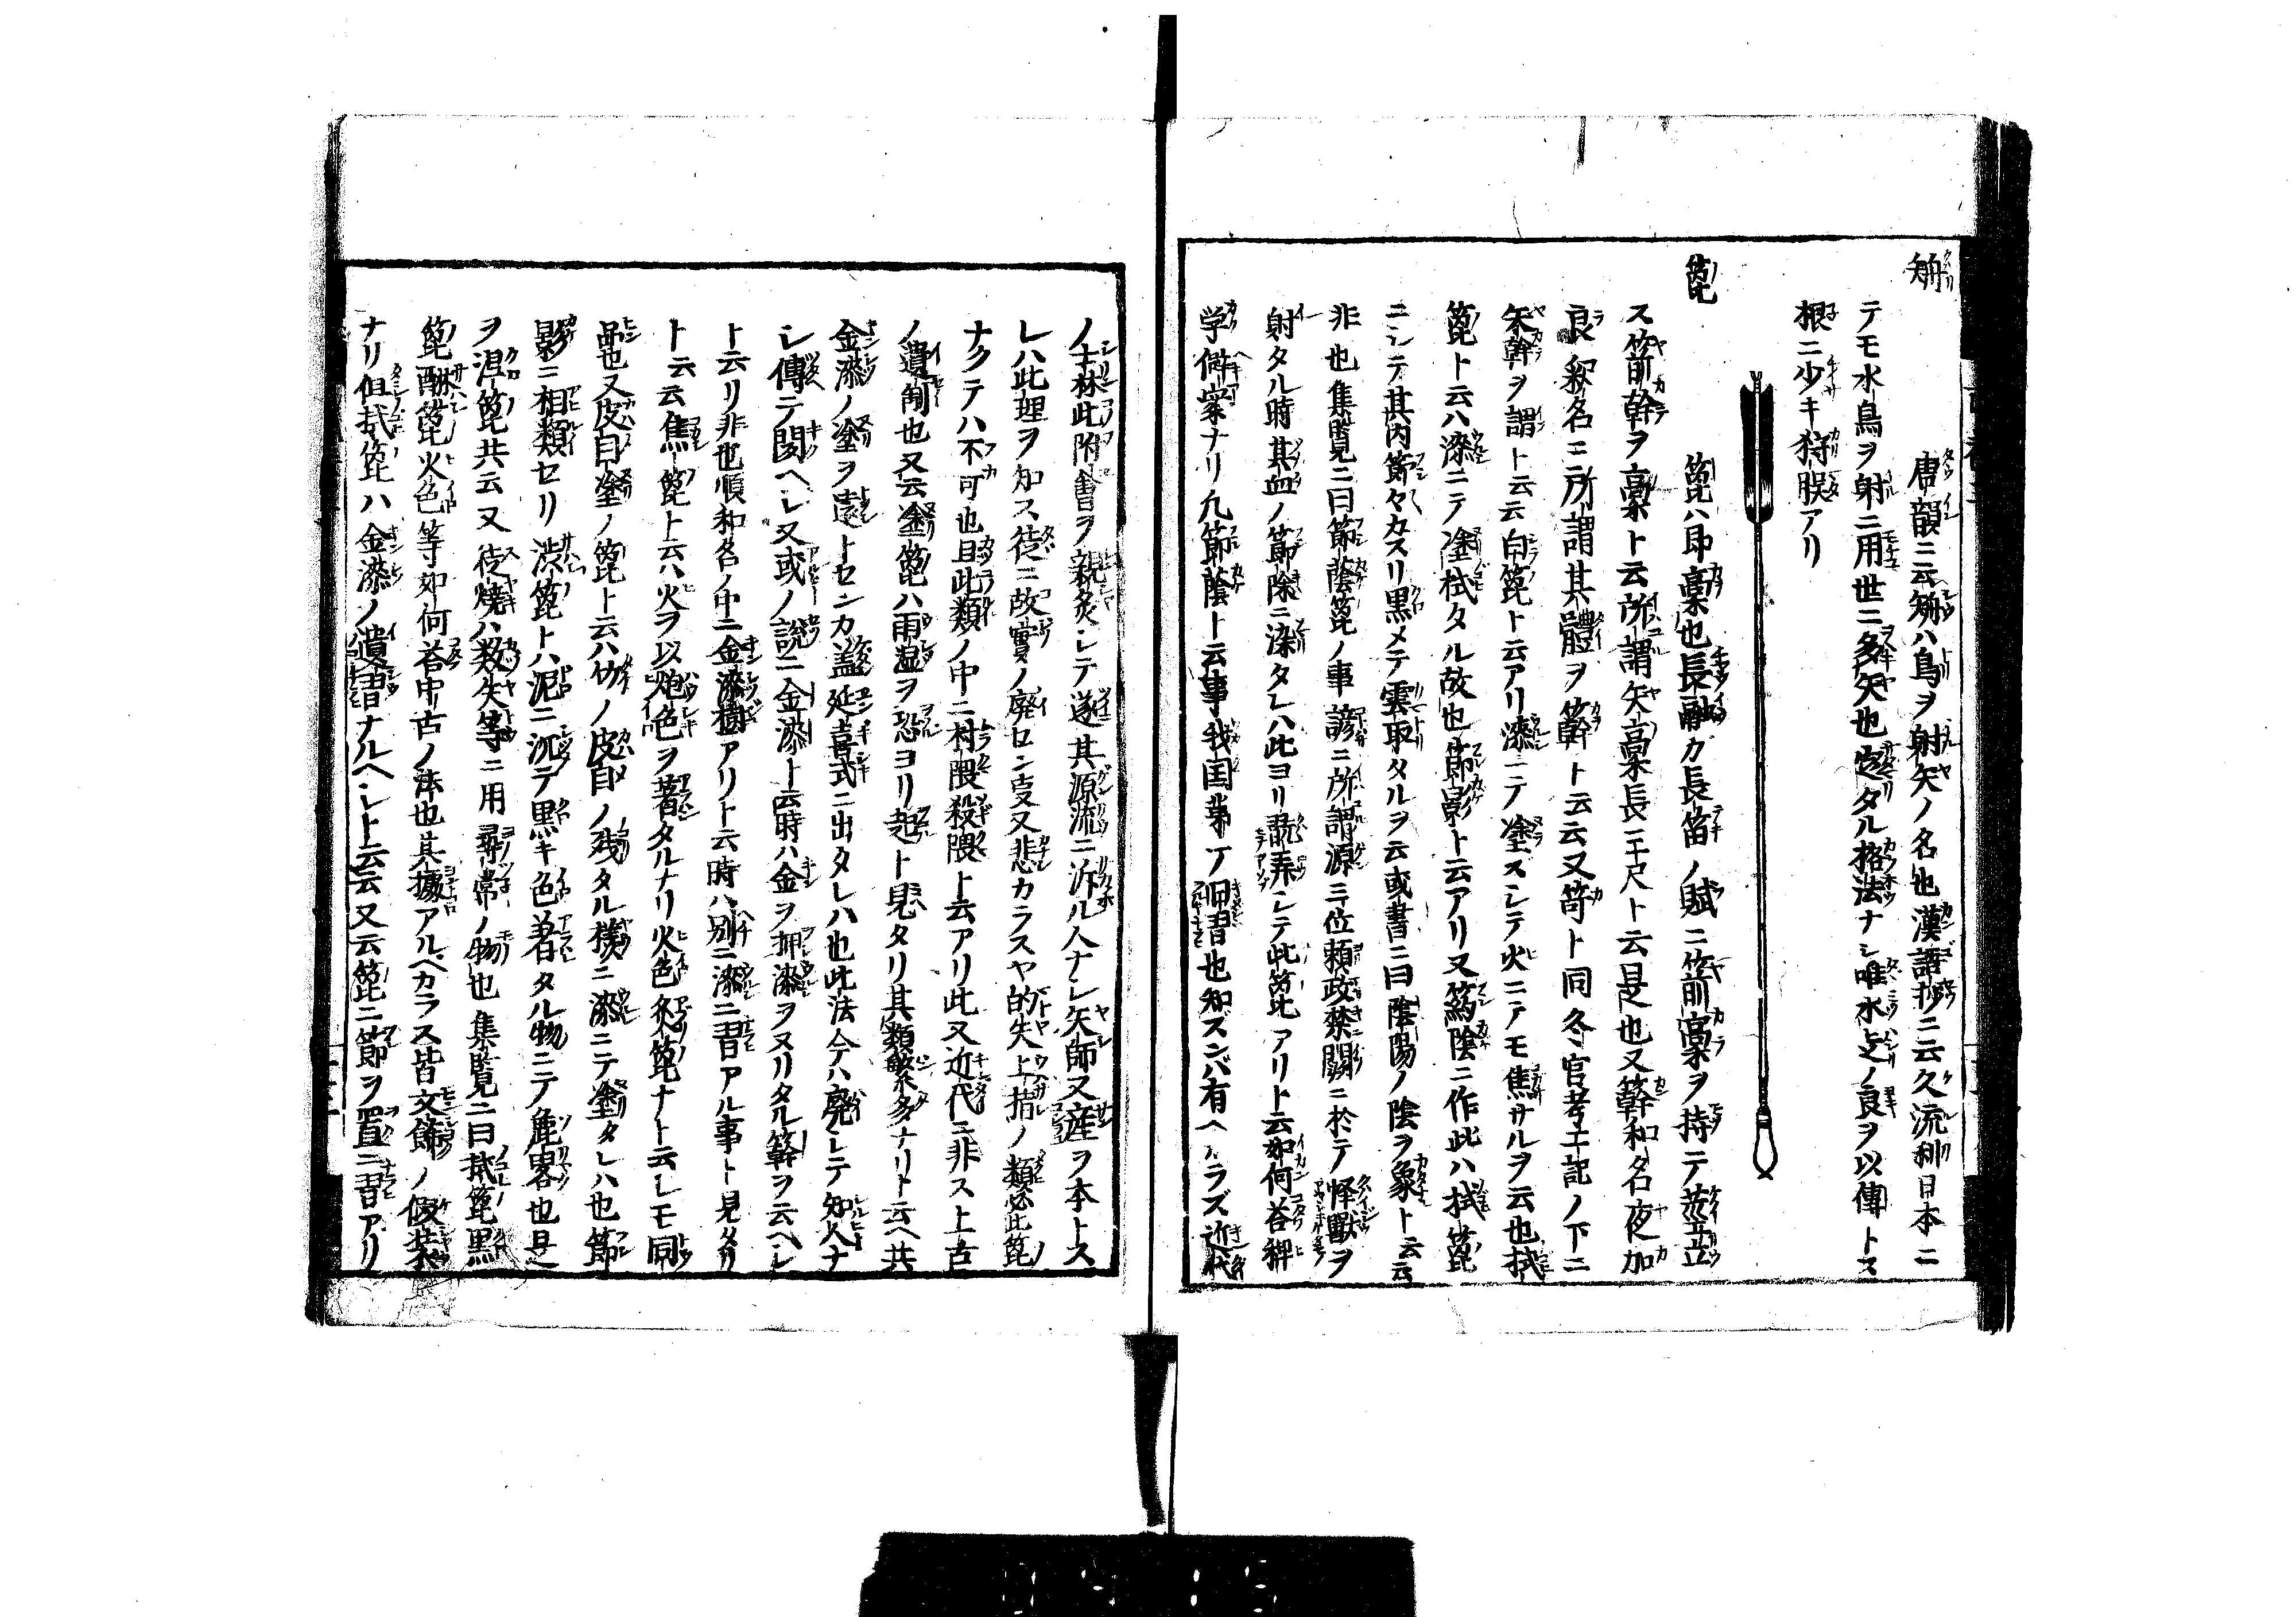 唐韻ニ云ハ鳥ヲ射矢ノ名也漢語抄ニ云久流利日本ニ
テモ水鳥ヲ射ニ用世ニ多矢也定タル格法ナシ唯水上ノ良ヲ以傳トス
根ニ少キ狩股アリ
箆
箆ハ即稾也長融カ長笛ノ賦ニ箭稾ヲ持テ莖立
ス箭幹ヲ稾ト云所謂矢稾長三尺ト云是也又幹和名夜加
良釈名ニ所謂其體ヲ幹ト云云又笴ト同冬官考工記ノ下ニ
矢幹ヲ謂ト云云白箆ト云アリ漆ニテ塗ズシテ火ニアモ焦サルヲ云也拭
箆ト云ハ漆ニテ塗拭タル故也節影ト云アリ又篶陰ニ作此ハ拭箆
ニシテ其内節々カスリ黒メテ雲取タルヲ云或書ニ曰陰陽ノ陰ヲ象ト云云
非也集覧ニ曰節蔭箆ノ事諺ニ所謂源三位頼政禁闕ニ於テ怪獣ヲ
射タル時其血ノ節陰ニ染タレハ此ヨリ翫弄シテ此箆アリト云如何答稗
学ナリ凡節蔭ト云事我国第一ノ旧習也知スンバ有ヘラズ近代
ノ士林此附會ヲ親炙シテ遂其源流ニ泝ル人ナシ矢師又産ヲ本トス
レハ此理ヲ知ス徒ニ故實ノ廃ロン㕝又悲カラスヤ的矢上指ノ類必此箆
ナクテハ不可也且此類ノ中ニ村隈殺隈ト云アリ此又近代ニ非ス上古
ノ遺制也又云塗箆ハ雨湿ヲ恐ヨリ起ト見タリ其類繁多ナリト云ヘ共
金漆ノ塗ヲ遠トセンカ盖延喜式ニ出タレハ也此法今ハ廃シテ知人ナ
シ傳テ聞ヘシ又或ノ説ニ金漆ト云時ハ金ヲ押漆ヲヌリタル幹ヲ云ヘシ
ト云リ非也順和名ノ中ニ金漆樹アリト云時ハ別ニ漆ニ習アル事ト見タリ
ト云云焦箆ト云ハ火ヲ以炮色ヲ著タルナリ火色炙箆ナト云シモ同
品也又皮自塗ノ箆ト云ハ竹ノ皮自ノ残タル様ニ漆ニテ塗タレハ也節
影ニ相類セリ渋箆トハ泥ニ沉テ黒キ色着タル物ニテ麁畧也是
ヲ涅箆共云又徒焼ハ数矢等ニ用尋常ノ物也集覧ニ曰拭箆黒
箆酬箆火色等如何答中リ古ノ法也其據アルヘカラス皆文飾ノ假装
ナリ但拭箆ハ金漆ノ遺習ナルヘシト云云又云箆ニ節ヲ置ニ習アリ